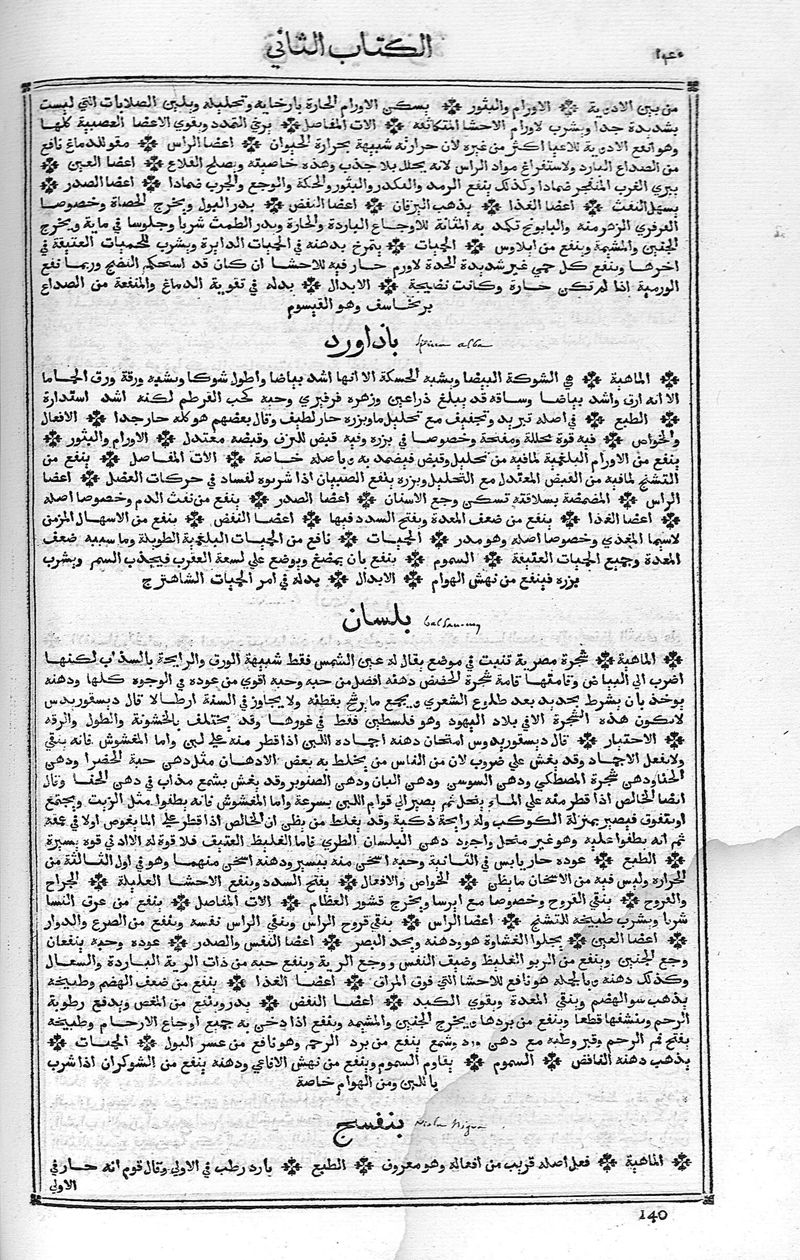 الكتاب الثاني
١٤٠
من بين الادوية ✤ الاورام والبثور ✤ يسكن الاورام الحارة بارخايه وتحليله ويلين الصلابات التي ليست
بشديدة جدا ويشرب لاورام الاحشا المتكاثفه ✤ الات المفاصل ✤ يرخي التمدد ويقوي الاعضا العصبية كلها
وهو انفع الادوية للاعيا اكثر من غيره لان حرارته شبيهة بحرارة الحيوان ✤ اعضا الراس ✤ مقو للدماغ نافع
من الصداع البارد ولاستفراغ مواد الراس لانه يحلل بلا جذب وهذه خاصيته ويصلح القلاع ✤ اعضا العين ✤
يبري الغرب المنفجر ضمادا وكذلك ينفع الرمد والتكدر والبثور والحكة والوجع والجرب ضمادا ✤ اعضا الصدر ✤
يسهل النفث ✤ اعضا الغذا ✤ يذهب اليرقان ✤ اعضا النفض ✤ يدر البول ويخرج الحصاة وخصوصا
الفرفري الزهر منه والبابونج تكمد به المثانة للاوجاع الباردة والحارة ويدر الطمث شربا وجلوسا في مايه ويخرج
الجنين والمشيمة وينفع من ايلاوس ✤ الحميات ✤ يتمرخ بدهنه في الحميات الدايرة ويشرب للحميات العتيقة في
اخرها وينفع كل حمي غير شديدة الحدة لاورم حار فيه للاحشا ان كان قد استحكم النضج وربما نفع
الورمية اذا لم تكن حارة وكانت نضيجة ✤ الابدال ✤ بدله في تقوية الدماغ والمنفعة من الصداع
برنجاسف وهو القيسوم
باداورد Spina alba
✤ الماهية ✤ هي الشوكة البيضا ويشبه الحسكة الا انها اشد بياضا واطول شوكا ويشبه ورقة ورق الخاما
الا انه ارق واشد بياضا وساقه قد يبلغ ذراعين وزهره فرفيري وحبه كحب القرطم لكنه اشد استدارة
✤ الطبع ✤ في اصله تبريد وتجفيف مع تحليل ما وبزره حار لطيف وقال بعضهم هو كله حار جدا ✤ الافعال
والخواص ✤ فيه قوة محللة ومفتحة وخصوصا في بزره وفيه قبض للنزف وقبضه معتدل ✤ الاورام والبثور ✤
ينفع من الاورام البلغمية لما فيه من تحليل وقبض فيضمد به وباصله خاصة ✤ الات المفاصل ✤ ينفع من
التشنج لما فيه من القبض المعتدل مع التحليل وبزره ينفع الصبيان اذا شربوه لفساد في حركات العضل ✤ اعضا
الراس ✤ المضمضة بسلاقته تسكن وجع الاسنان ✤ اعضا الصدر ✤ ينفع من نفث الدم وخصوصا اصله
✤ اعضا الغذا ✤ ينفع من ضعف المعدة ويفتح السدد فيها ✤ اعضا النفض ✤ ينفع من الاسهال المزمن
لاسيما المعدي وخصوصا اصله وهو مدر ✤ الحميات ✤ نافع من الحميات البلغمية الطويلة وما سببه ضعف
المعدة وجميع الحميات العتيقة ✤ السموم ✤ ينفع بان يمضغ ويوضع علي لسعة العقرب فيجذب السم ويشرب
بزره فينفع من نهش الهوام ✤ الابدال ✤ بدله في امر الحميات الشاهترج
بلسان balsamum
✤ الماهية ✤ شجرة مصرية تنبت في موضع يقال له عين الشمس فقط شبيهة الورق والرايحة بالسذاب لكنها
اضرب الي البياض وقامتها قامة شجرة الحضض دهنه افضل من حبه وحبه اقوي من عوده في الوجوه كلها ودهنه
يوخذ بان يشرط بحديد بعد طلوع الشعري ويجمع ما يرشح بقطنه ولا يجاوز في السنة ارطالا قال ديسقوريدس
لا يكون هذه الشجرة الا في بلاد اليهود وهو فلسطين فقط في غورها وقد يختلف بالخشونة والطول والرقه
✤ الاختبار ✤ قال ديسقوريدوس امتحان دهنه اجماده اللبن اذا قطر منه علي لبن واما المغشوش فانه ينقي
ولا يفعل الاجماد وقد يغش علي ضروب لان من الناس من يخلط به بعض الادهان مثل دهن حبة الخضرا ودهن
الحنا ودهن شجرة المصطكي ودهن السوسن ودهن البان ودهن الصنوبر وقد يغش بشمع مذاب في دهن الحنا وقال
ايضا الخالص اذا قطر منه علي الماء ينحل ثم يصير الي قوام اللبن بسرعة واما المغشوش فانه يطفوا مثل الزيت ويجتمع
او يتفرق فيصير بمنزلة الكوكب وله رايحة ذكية وقد يغلط من يظن ان الخالص اذا قطر علي الما يغوص اولا في عمقه
ثم انه يطفوا عليه وهو غير منحل واجود دهن البلسان الطري فاما الغليظ العتيق فلا قوة له الا ادني قوة يسيرة
✤ الطبع ✤ عوده حار يابس في الثانية وحبه اسخن منه بيسير ودهنه اسخن منهما وهو في اول الثالثة من
الحرارة وليس فيه من الاسخان ما يظن ✤ الخواص والافعال ✤ يفتح السدد وينفع الاحشا العليلة ✤ الجراح
والقروح ✤ ينقي القروح وخصوصا مع ايرسا ويخرج قشور العظام ✤ الات المفاصل ✤ ينفع من عرق النسا
شربا ويشرب طبيخه للتشنج ✤ اعضا الراس ✤ ينقي قروح الراس وينقي الراس نفسه وينفع من الصرع والدوار
✤ اعضا العين ✤ يجلوا الغشاوة هو ودهنه ويحد البصر ✤ اعضا النفس والصدر ✤ عوده وحبه ينفعان
وجع الجنبين وينفع من الربو الغليظ وضيق النفس ووجع الرية وينفع حبه من ذات الرية الباردة والسعال
وكذلك دهنه وبالجمله هو نافع للاحشا التي فوق المراق ✤ اعضا الغذا ✤ ينفع من ضعف الهضم وطبيخه
يذهب سو الهضم وينقي المعدة ويقوي الكبد ✤ اعضا النفض ✤ يدر وينفع من المغص ويدفع رطوبة
الرحم وينشفها قطعا وينفع من بردها ويخرج الجنين والمشيمه وينفع اذا دخن به جميع اوجاع الارحام وطبيخه
يفتح فم الرحم وقيروطيه مع دهن ورد وشمع ينفع من برد الرحم وهو نافع من عسر البول ✤ الحميات ✤
يذهب دهنه النافض ✤ السموم ✤ يقاوم السموم وينفع من نهش الافاعي ودهنه ينفع من الشوكران اذا شرب
باللبن ومن الهوام خاصة
بنفسج Viola Nigra
✤ الماهية ✤ فعل اصله قريب من افعاله وهو معروف ✤ الطبع ✤ بارد رطب في الاولي وقال قوم انه حار في
الاولي
140